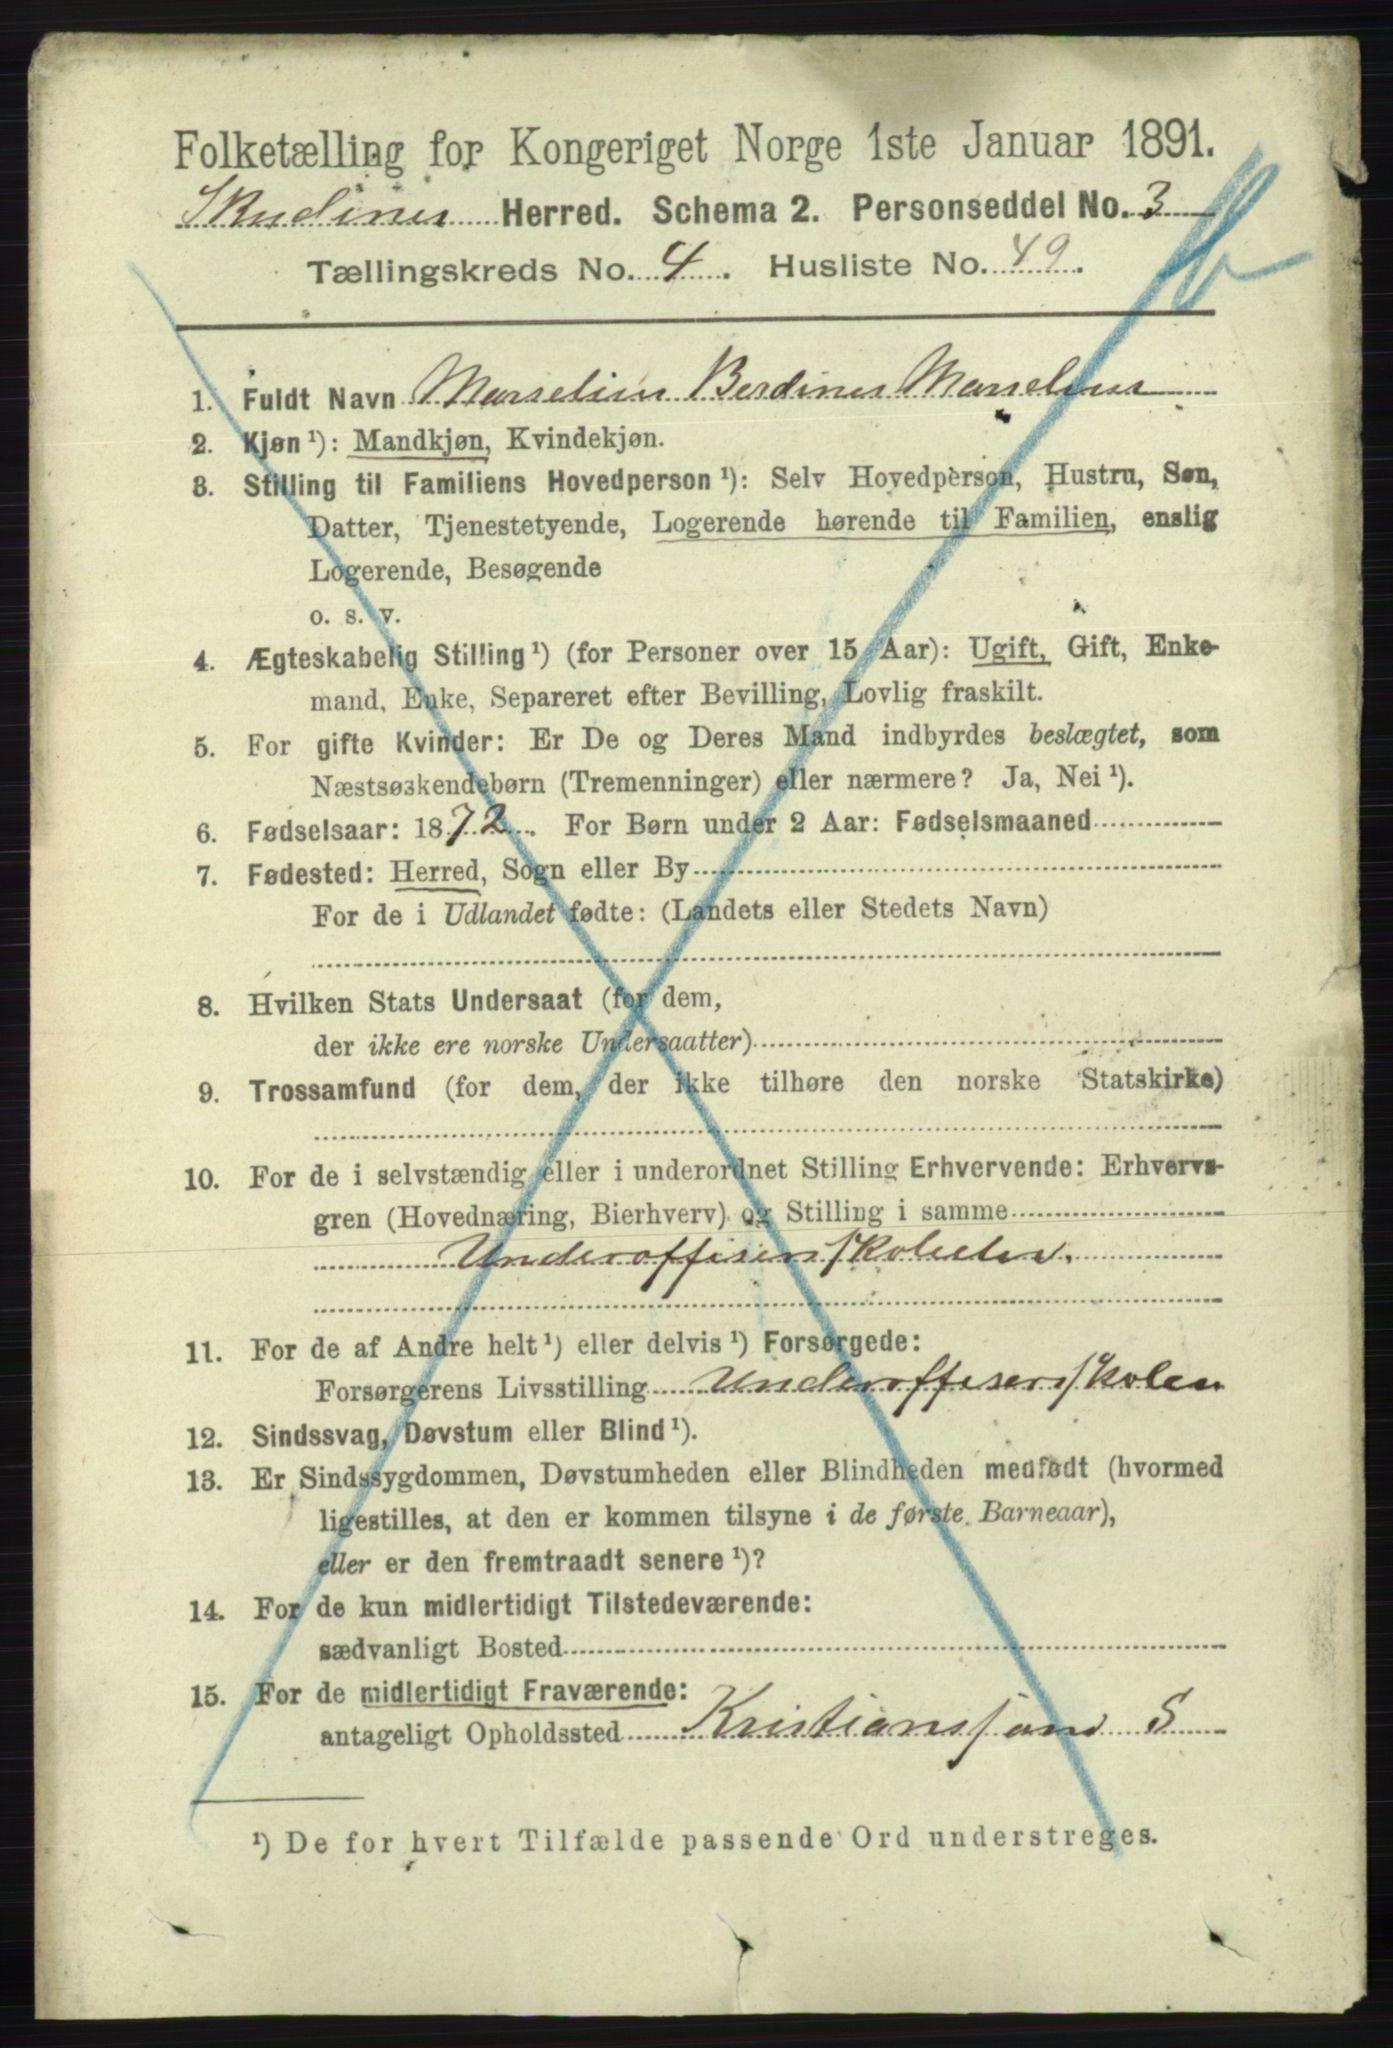 Folketælling for Kongeriget Norge 1ste Januar 1891.
Skudenes Herred. Schema 2. Personseddel No. 3
Tællingskreds No. 4. Husliste No. 49.
1. Fuldt Navn Marselius Berdines Marselius
2. Kjøn ¹): Mandkjøn, Kvindekjøn.
3. Stilling til Familiens Hovedperson ¹): Selv Hovedperson, Hustru, Søn,
Datter, Tjenestetyende, Logerende hørende til Familien, enslig
Logerende, Besøgende
o. s. v.
4. Ægteskabelig Stilling ¹) (for Personer over 15 Aar): Ugift, Gift, Enke-
mand, Enke, Separeret efter Bevilling, Lovlig fraskilt.
5. For gifte Kvinder: Er De og Deres Mand indbyrdes beslægtet, som
Næstsøskendebørn (Tremenninger) eller nærmere? Ja, Nei ¹).
6. Fødselsaar: 1872. For Børn under 2 Aar: Fødselsmaaned
7. Fødested: Herred, Sogn eller By
For de i Udlandet fødte: (Landets eller Stedets Navn)
8. Hvilken Stats Undersaat (for dem,
der ikke ere norske Undersaatter)
9. Trossamfund (for dem, der ikke tilhøre den norske Statskirke)
10. For de i selvstændig eller i underordnet Stilling Erhvervende: Erhvervs-
gren (Hovednæring, Bierhverv) og Stilling i samme
Underoffisersskoleelev.
11. For de af Andre helt ¹) eller delvis ¹) Forsørgede:
Forsørgerens Livsstilling Underoffisersskolen
12. Sindssvag, Døvstum eller Blind ¹).
13. Er Sindssygdommen, Døvstumheden eller Blindheden medfødt (hvormed
ligestilles, at den er kommen tilsyne i de første Barneaar),
eller er den fremtraadt senere ¹)?
14. For de kun midlertidigt Tilstedeværende:
sædvanligt Bosted
15. For de midlertidigt Fraværende:
antageligt Opholdssted Kristianssand S
¹) De for hvert Tilfælde passende Ord understreges.